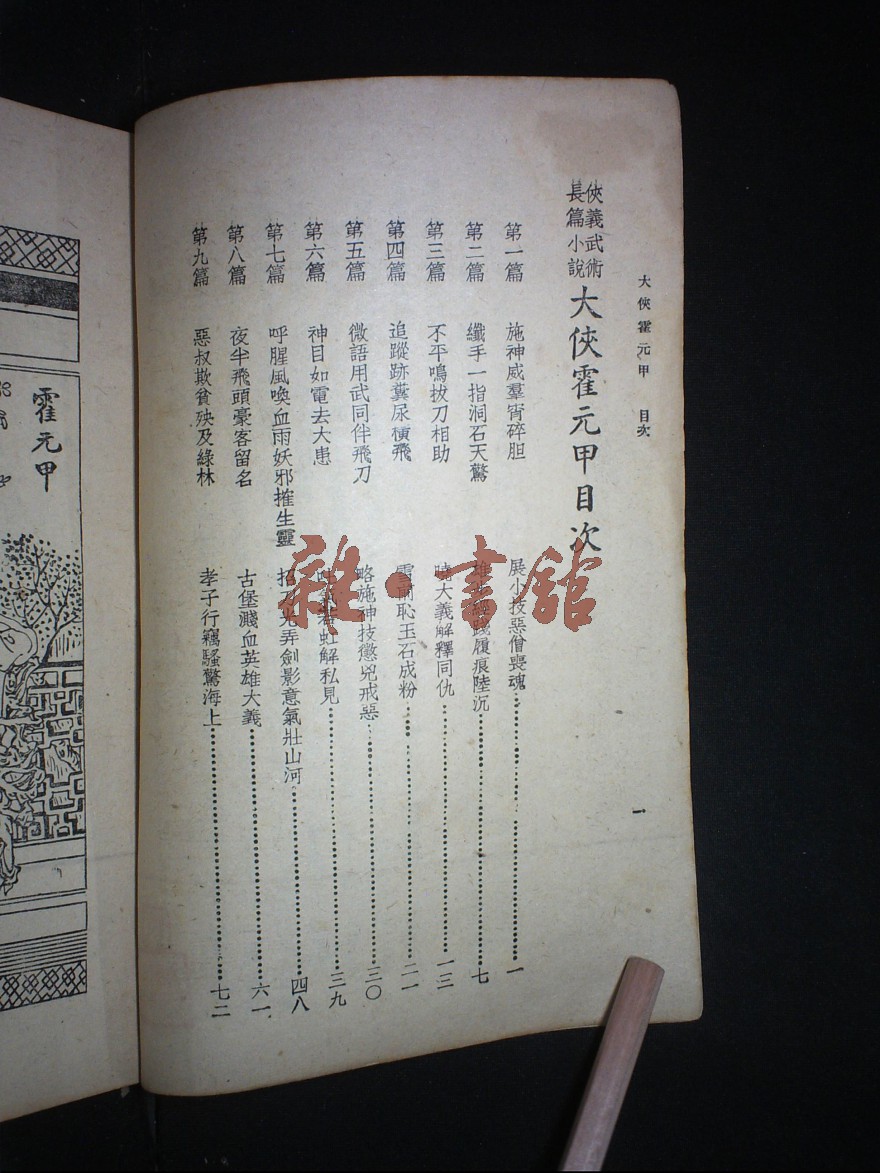 大俠霍元甲 目次
一
俠義武術
長篇小說
大俠霍元甲目次
第一篇 施神威羣宵碎胆 展小技惡僧喪魂 一
第二篇 纖手一指洞石天驚 履痕陸沉 七
第三篇 不平鳴拔刀相助 曉大義解釋同仇 一三
第四篇 追蹤跡糞尿橫飛 恥玉石成粉 二一
第五篇 微語用武同伴飛刀 略施神技懲兇戒惡 三〇
第六篇 神目如電去大患 虹解私見 三九
第七篇 呼腥風喚血雨妖邪摧生靈 弄劍影意氣壯山河 四八
第八篇 夜半飛頭豪客留名 古堡濺血英雄大義 六一
第九篇 惡叔欺貧殃及綠林 孝子行竊騷驚海上 七二
霍元甲
雜·書館